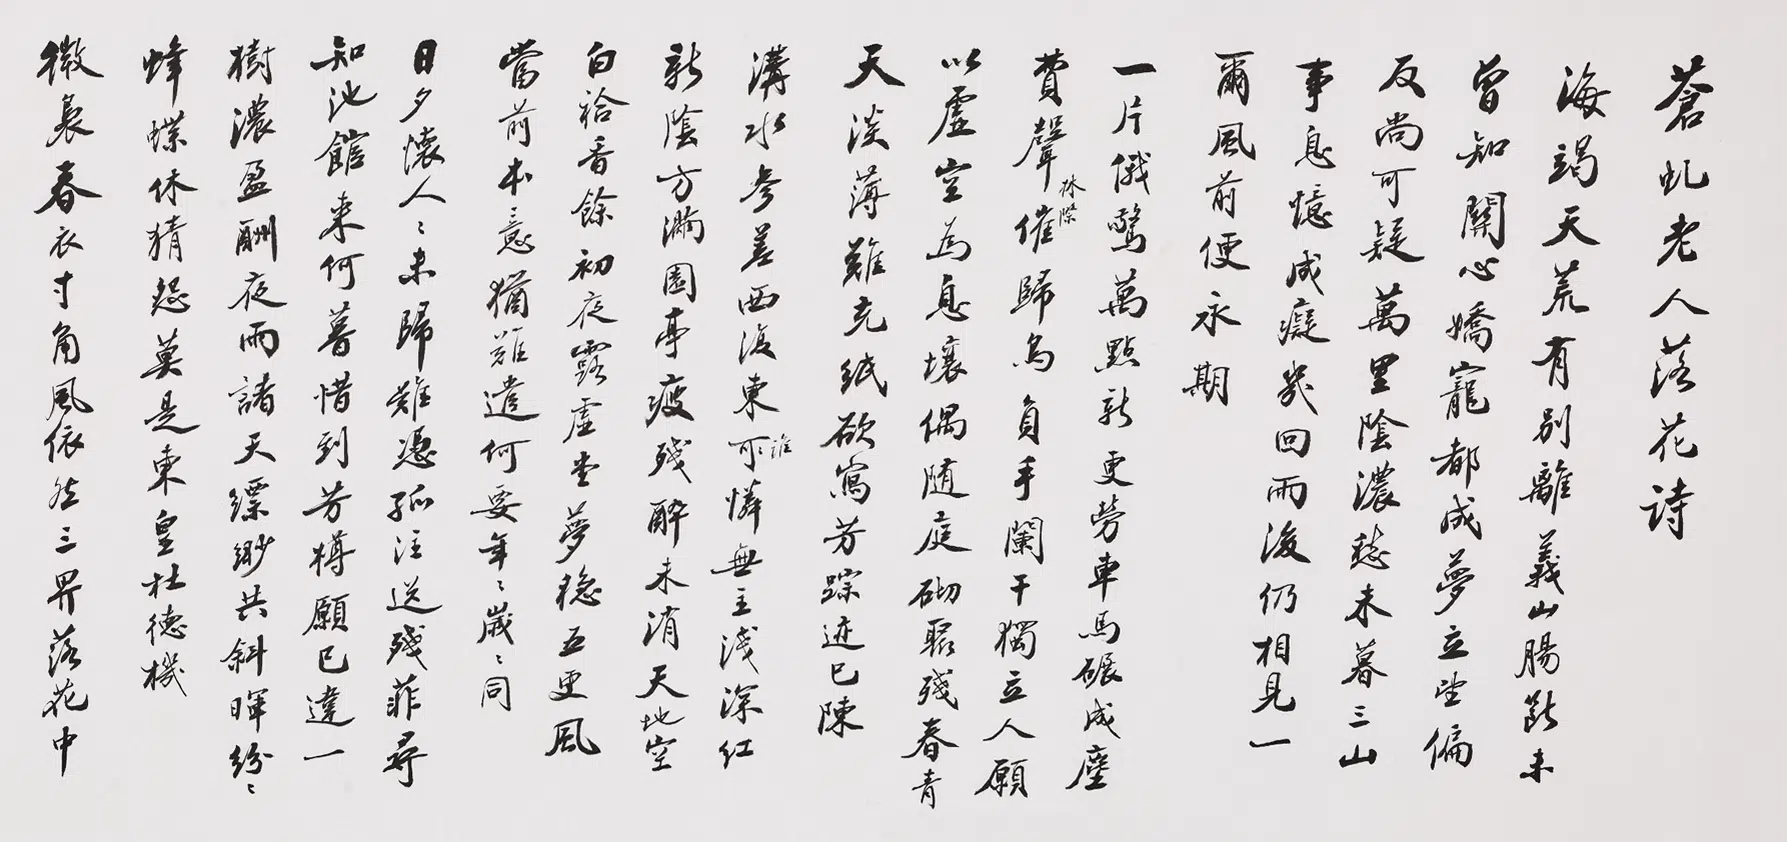 蒼虬老人落花詩
海竭天荒有別離義山腸斷未
曾知關心嬌寵都成夢立望偏
反尚可疑萬里陰濃愁未暮三山
事息憶成癡幾回雨後仍相見一
爾風前便永期
一片俄驚萬點新更勞車馬碾成塵
費聲催歸烏負手闌干獨立人願
休際
以虛空為息壤偶隨庭砌聚殘春青
天淡薄難充紙欲寫芳踪迹已陳
溝水參差西復東可憐無主淺深紅
誰
新陰方滿園亭寂殘醉未消天地空
白袷香餘初夜露虛堂夢穩五更風
當前本意猶難遣何要年〻歲〻同
日夕懷人〻未歸難憑孤注送殘菲尋
知池館來何暮惜到芳樽願已違一
樹濃盈酬夜雨諸天縹緲共斜暉紛〻
蜂蝶休猜怨莫是東皇杜德機
微裊春衣寸角風依然三界落花中